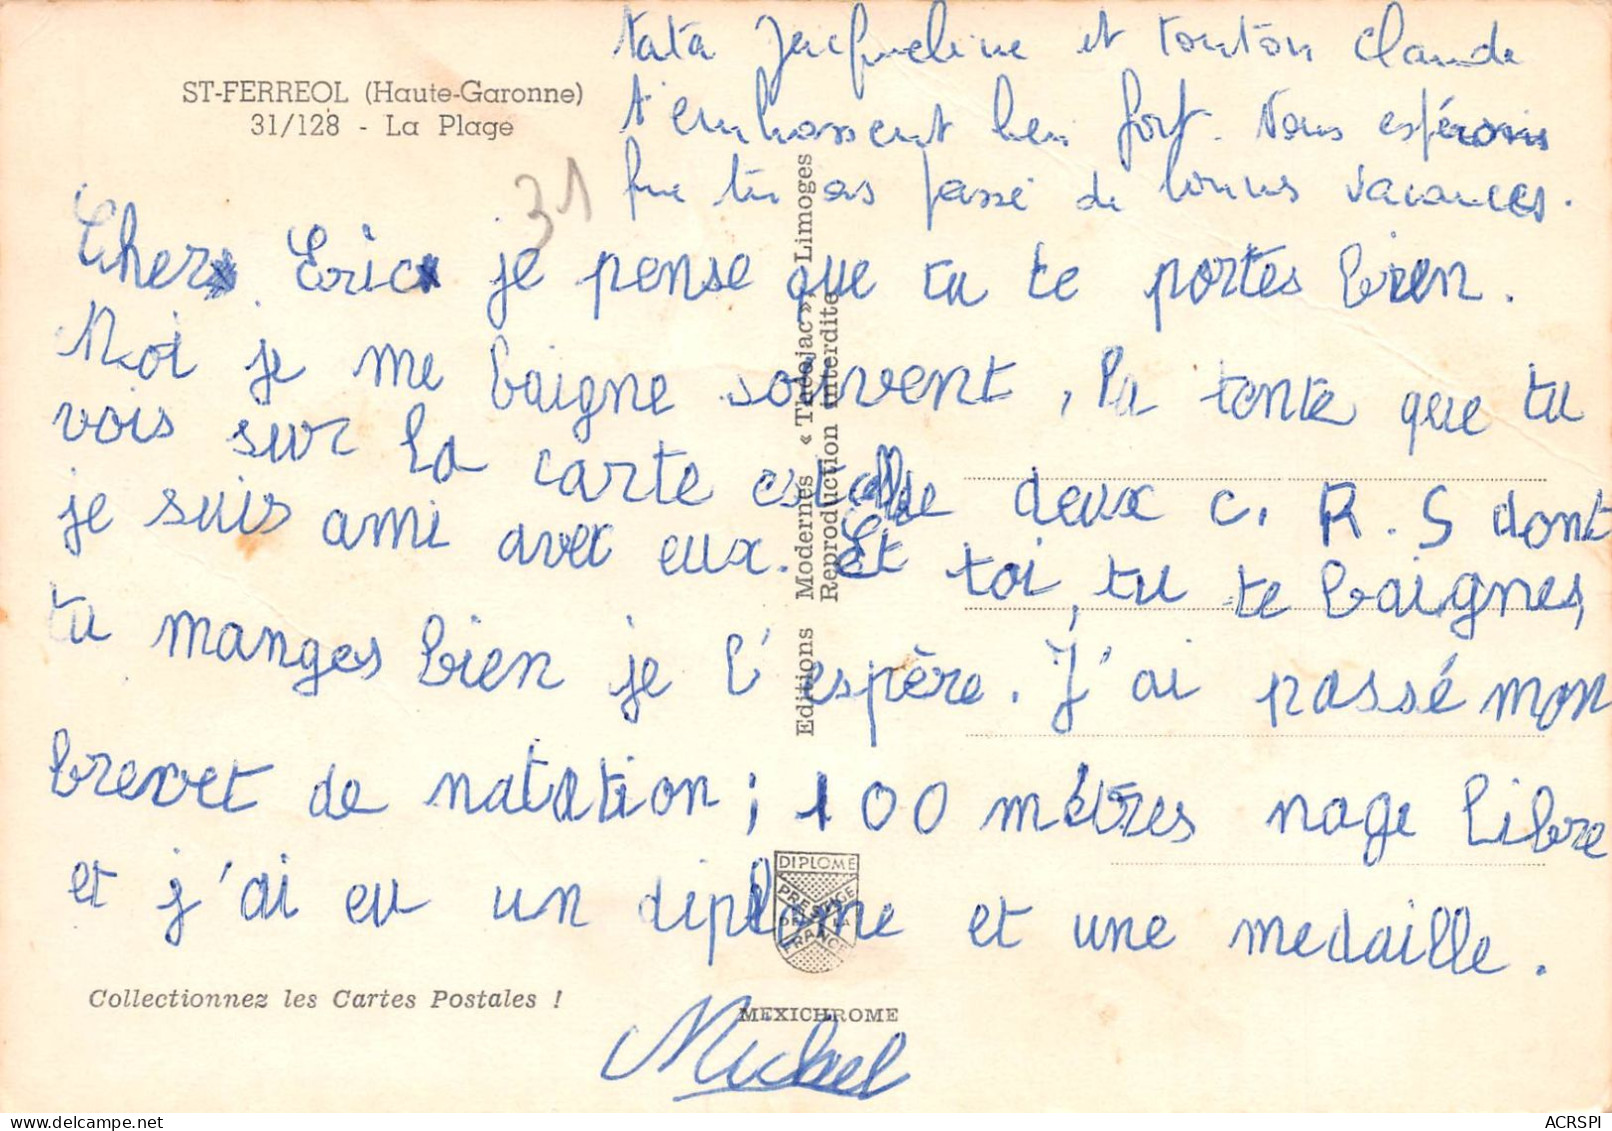 tata Jacqueline et tonton Claude
t'embrassent bien fort. Nous espérons
que tu as passé de bonnes vacances.
ST-FERREOL (Haute-Garonne)
31/128 - La Plage
31
Cher Eric je pense que tu te portes bien.
Moi je me baigne souvent, la tente que tu
vois sur la carte est celle de deux C.R.S dont
je suis ami avec eux. Et toi, tu te baignes,
tu manges bien je l'espère. J'ai passé mon
brevet de natation; 100 mètres nage libre
et j'ai eu un diplôme et une medaille.
Michel
Editions Modernes « Théojac », Limoges
Reproduction interdite
DIPLOME
PRESTIGE
DE LA
FRANCE
Collectionnez les Cartes Postales !
MEXICHROME
ACRSPI